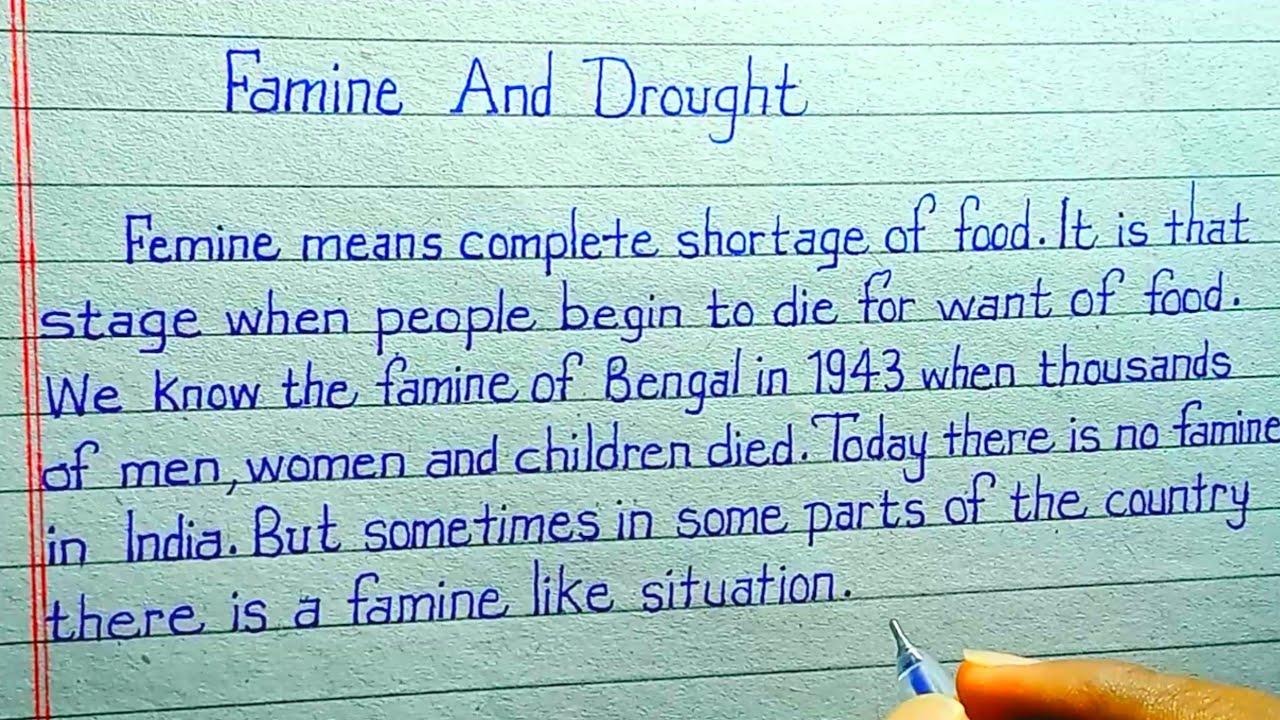 Famine And Drought
Femine means complete shortage of food. It is that
stage when people begin to die for want of food.
We know the famine of Bengal in 1943 when thousands
of men, women and children died. Today there is no famine
in India. But sometimes in some parts of the country
there is a famine like situation.